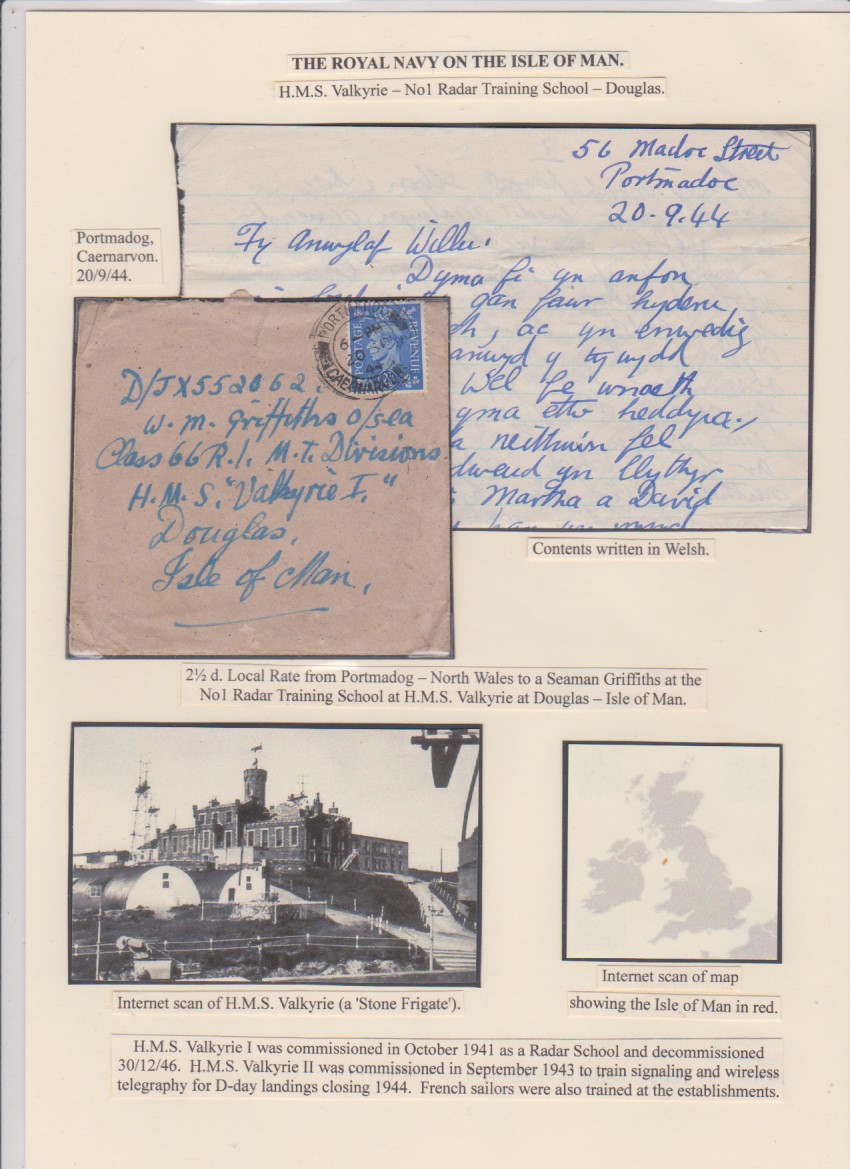 THE ROYAL NAVY ON THE ISLE OF MAN.
H.M.S. Valkyrie – No1 Radar Training School – Douglas.
56 Madoc Street
Portmadoc
20-9.44
Fy Anwylaf Willie.
Dyma fi yn anfon
gan fawr hyderu
ac yn enwedig
y tywydd
Wel fe wnaeth
etto heddyw
a neithiwr fel
yn llythyr
Martha a David
Portmadog,
Caernarvon.
20/9/44.
POSTAGE REVENUE
CAERNARVON
D/JX552062.
W. M. Griffiths O/sea
Class 66 R.1. M.T. Divisions
H.M.S. "Valkyrie I."
Douglas,
Isle of Man,
Contents written in Welsh.
2½ d. Local Rate from Portmadog – North Wales to a Seaman Griffiths at the
No1 Radar Training School at H.M.S. Valkyrie at Douglas – Isle of Man.
Internet scan of H.M.S. Valkyrie (a 'Stone Frigate').
Internet scan of map
showing the Isle of Man in red.
H.M.S. Valkyrie I was commissioned in October 1941 as a Radar School and decommissioned
30/12/46. H.M.S. Valkyrie II was commissioned in September 1943 to train signaling and wireless
telegraphy for D-day landings closing 1944. French sailors were also trained at the establishments.